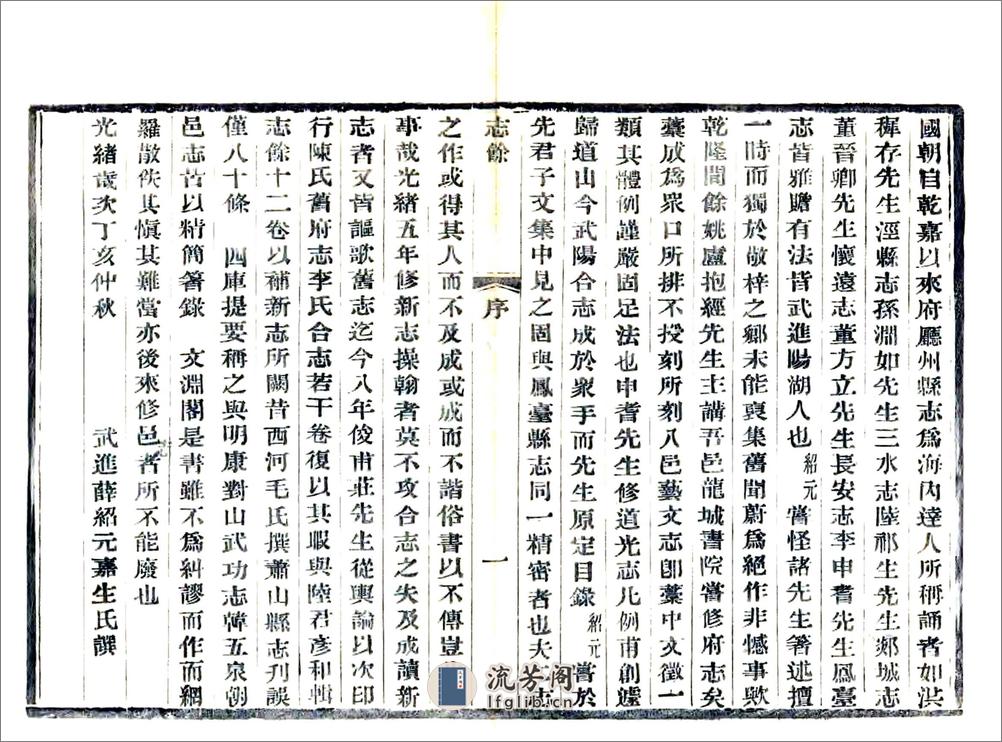 國朝自乾嘉以來府廳州縣志爲海內達人所稱誦者如洪
穉存先生涇縣志孫淵如先生三水志陸祁生先生郯城志
董晉卿先生懷遠志董方立先生長安志李申耆先生鳳臺
志皆雅贍有法皆武進陽湖人也紹元嘗怪諸先生箸述擅
一時而獨於敬梓之鄉未能裒集舊聞蔚爲絕作非憾事歟
乾隆間餘姚盧抱經先生主講吾邑龍城書院嘗修府志矣
藁成爲眾口所排不授刻所刻八邑藝文志卽藁中文徵一
類其體例謹嚴固足法也申耆先生修道光志凡例甫創遽
歸道山今武陽合志成於眾手而先生原定目錄紹元嘗於
先君子文集中見之固與鳳臺縣志同一精密者也夫
志餘 序 一
之作或得其人而不及成或成而不諧俗書以不傳豈
事哉光緒五年修新志操翰者莫不攻合志之失及成讀新
志者又皆謳歌舊志迄今八年俊甫莊先生從輿論以次印
行陳氏舊府志李氏合志若干卷復以其暇與陸君彥和輯
志餘十二卷以補新志所闕昔西河毛氏撰蕭山縣志刊誤
僅八十條 四庫提要稱之與明康對山武功志韓五泉朝
邑志苦以精簡箸錄 文淵閣是書雖不爲糾謬而作而網
羅散佚其愼其難當亦後來修邑者所不能廢也
光緒歲次丁亥仲秋 武進薛紹元嘉生氏譔
流芳阁
lfglib.cn